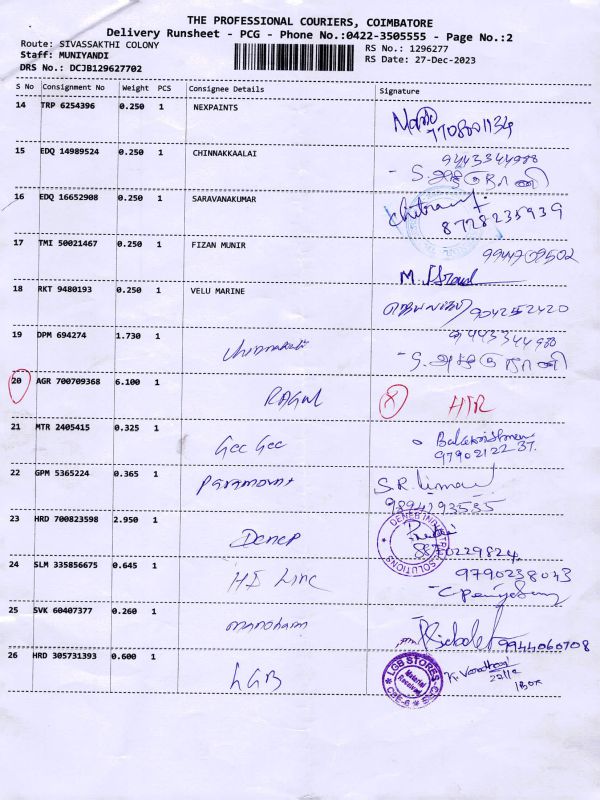 THE PROFESSIONAL COURIERS, COIMBATORE
Delivery Runsheet - PCG - Phone No.:0422-3505555 - Page No.:2
Route: SIVASSAKTHI COLONY
RS No.: 1296277
Staff: MUNIYANDI
RS Date: 27-Dec-2023
DRS No.: DCJB129627702
S No Consignment No Weight PCS Consignee Details Signature
14 TRP 6254396 0.250 1 NEXPAINTS
15 EDQ 14989524 0.250 1 CHINNAKKAALAI
9443344988
16 EDQ 16652908 0.250 1 SARAVANAKUMAR
8728235939
17 TMI 50021467 0.250 1 FIZAN MUNIR
9944709502
M.
18 RKT 9480193 0.250 1 VELU MARINE
9042552420
19 DPM 694274 1.730 1
9443344988
20 AGR 700709368 6.100 1 RAGUL X HTR
21 MTR 2405415 0.325 1 Gee Gee Balakrishnan
9790212237.
22 GPM 5365224 0.365 1 Paramount S.R.
9894193535
23 HRD 700823598 2.950 1 Denep
DENEB INDUSTRIAL SOLUTIONS
8870229824
24 SLM 335856675 0.645 1 HI Line 9790238043
25 SVK 60407377 0.260 1 manoharn 9944060708
26 HRD 305731393 0.600 1 LGB
LGB STORES
Material Received
CBE-6
K. Varatharaj
1 BOX